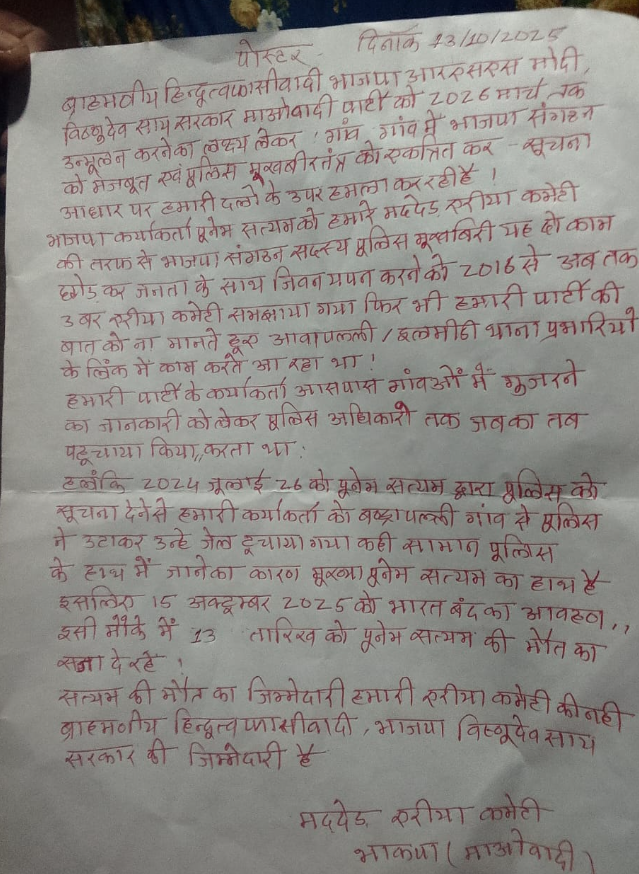 पोस्टर - दिनाँक 13/10/2025
ब्राहमणीय हिन्दूत्वफासीवादी भाजपा आरएसएस मोदी,
विष्णुदेव साय सरकार माओवादी पार्टी को 2026 मार्च तक
उन्मूलन करनेका लक्ष्य लेकर, गांव गांव में भाजपा संगठन
को मजबूत एवं पुलिस मूखबीरतंत्र को एकत्रित कर - सूचना
आधार पर हमारी दलो के उपर हमला कर रही है !
भाजपा कर्याकर्ता पूनेम सत्यम को हमारे मददेड़ एरीया कमेटी
की तरफ से भाजपा संगठन सदस्य पुलिस मूखबिरी यह दो काम
छोड़ कर जनता के साथ जिवन यपन करने को 2016 से अब तक
3 बर एरीया कमेटी समझाया गया फिर भी हमारी पार्टी की
बात को ना मानते हूए आवापल्ली / इलमीडी थाना प्रभारियो
के लिंक में काम करते आ रहा था !
हमारी पार्टी के कर्याकर्ता आसपास गांवओं में गुजरने
का जानकारी को लेकर पुलिस अधिकारी तक जब का तब
पहूचाया किया,, करता था :
हलंकि 2024 जूलाई 26 को पूनेम सत्यम द्वारा पुलिस को
सूचना देनेसे हमारी कर्याकर्ता को गांव से पुलिस
ने उटाकर उन्हे जेल हूचाया गया कही सामान पूलिस
के हाथ में जानेका कारण पूनेम सत्यम का हाथ है
इसलिए 15 अक्टूम्बर 2025 को भारत बंद का आवहण,,
इसी मौके में 13 तारिख को पूनेम सत्यम की मौत का
सजा दे रहे !
सत्यम की मौत का जिम्मेदारी हमारी एरीया कमेटी की नही
ब्राहमणीय हिन्दूत्वफासीवादी, भाजपा विष्णूदेव साय
सरकार की जिम्मेदारी है
मददेड़ एरीया कमेटी
भाकपा (माओवादी)